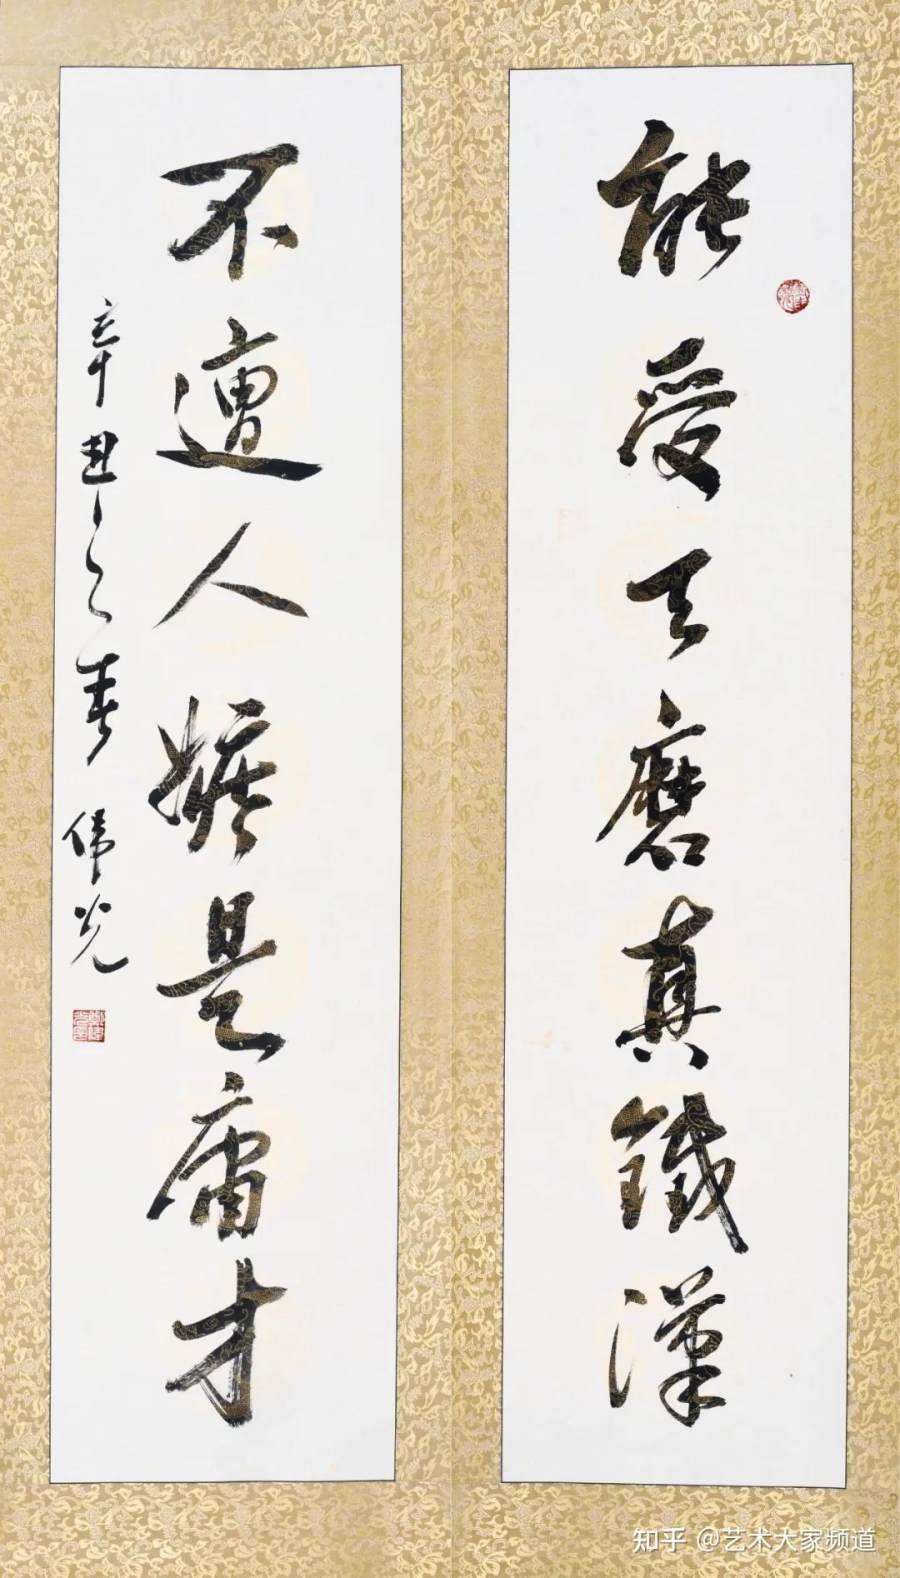 能受天磨真鐵漢
不遭人嫉是庸才
辛丑之春 伟光
知乎 @艺术大家频道